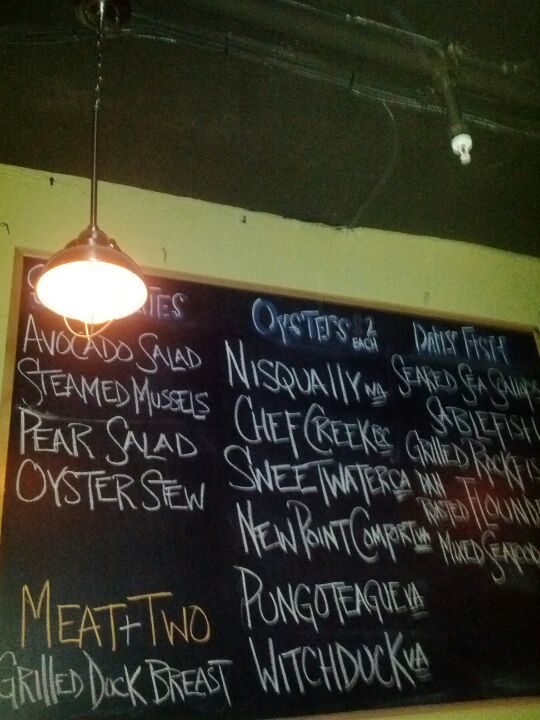 AVOCADO SALAD
STEAMED MUSSELS
PEAR SALAD
OYSTER STEW
MEAT + TWO
GRILLED DUCK BREAST
OYSTERS $2 EACH
NISQUALLY WA
CHEF CREEK BC
SWEETWATER CA
NEW POINT COMFORT VA
PUNGOTEAGUE VA
WITCHDUCK VA
DAILY FISH
SEARED SEA
SABLEFISH
GRILLED
PAN
ROASTED
MIXED